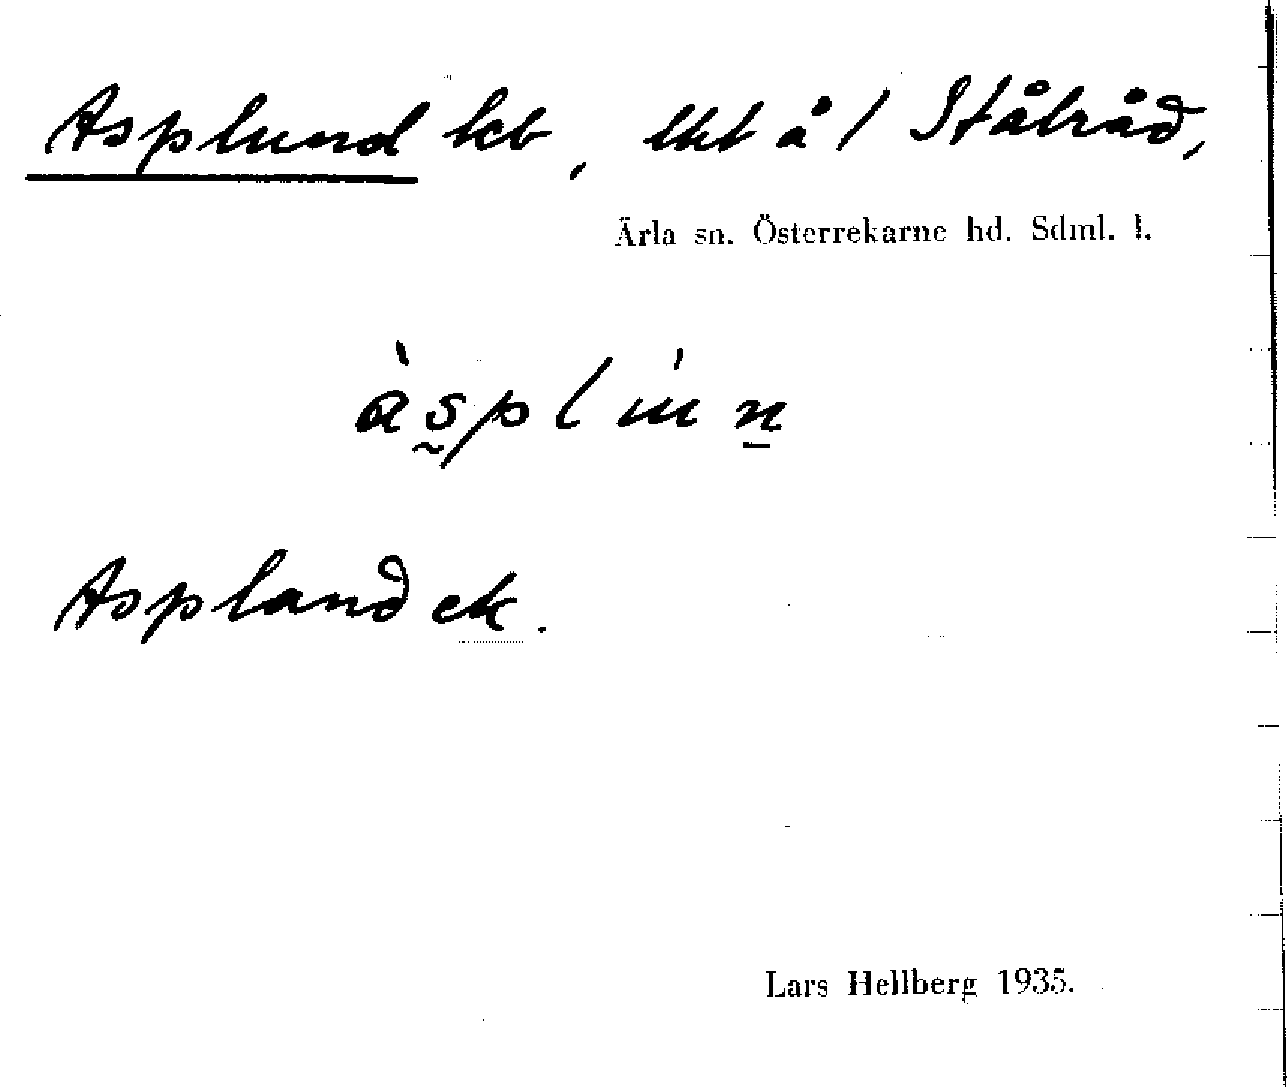 Asplund lcb, lht å / Stålråd,
Ärla sn. Österrekarne hd. Sdml. l.
Aspland ek.
Lars Hellberg 1935.